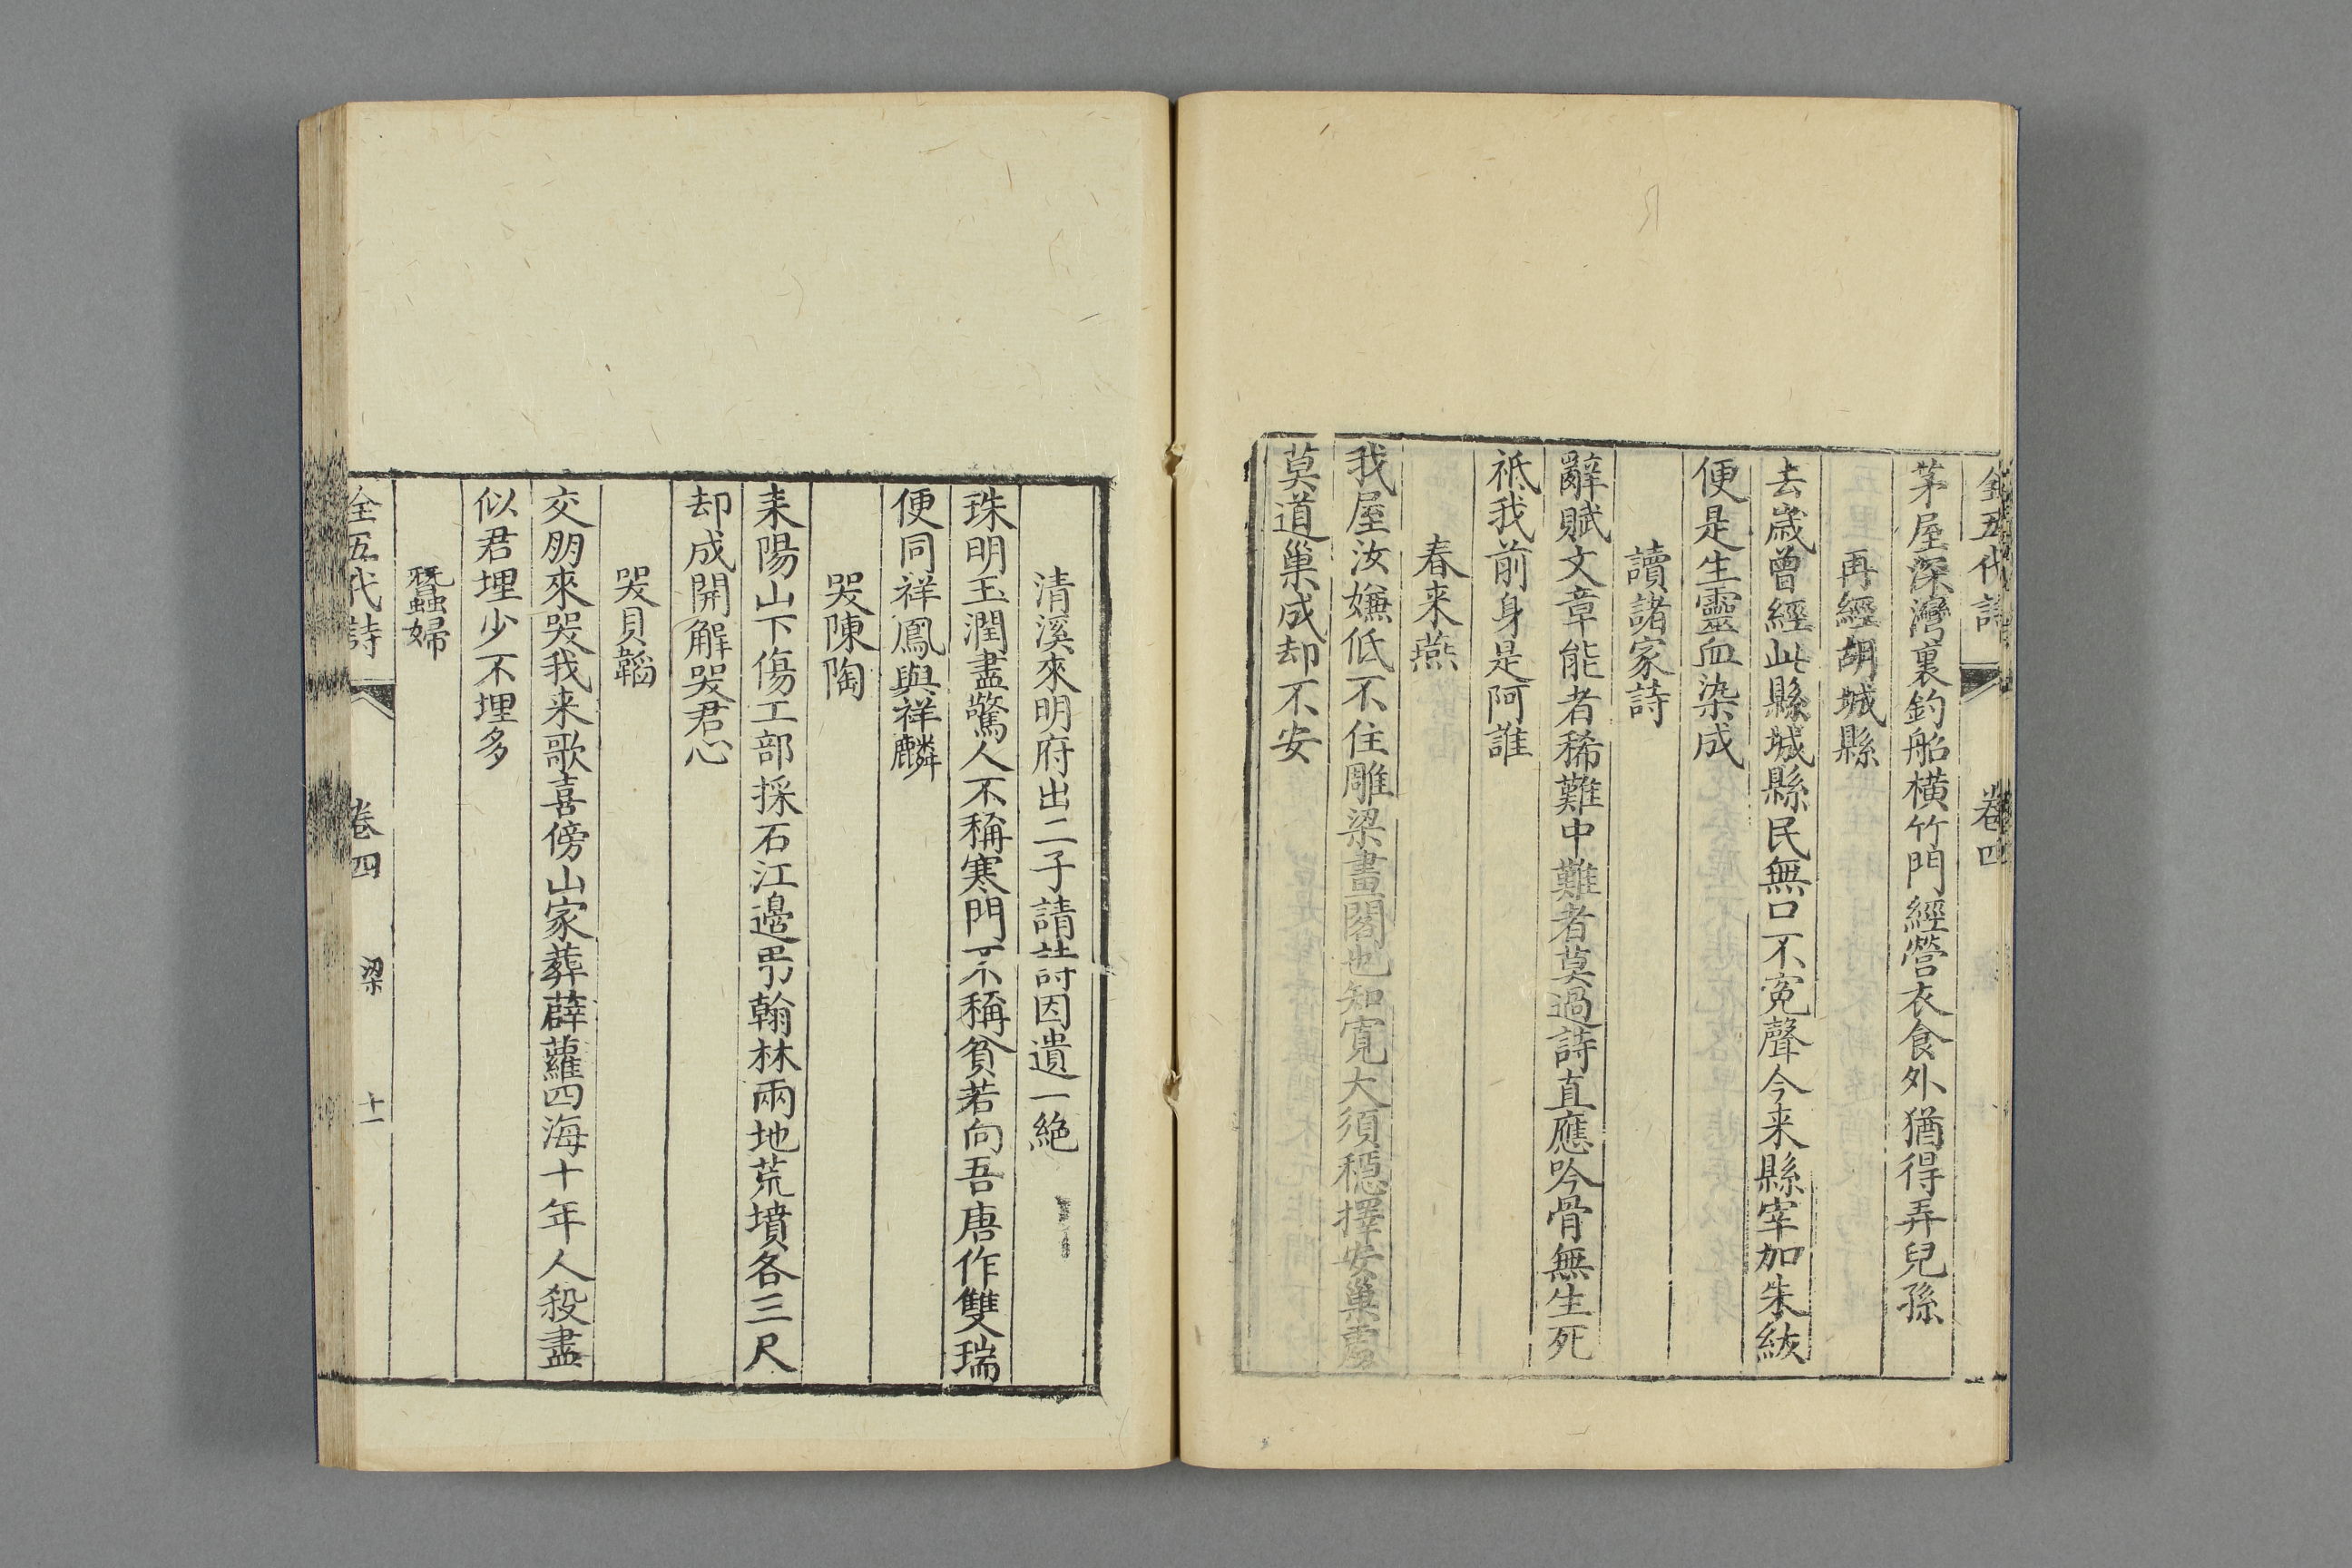 全五代詩 卷四
茅屋深灣裏釣船橫竹門經營衣食外猶得弄兒孫
再經胡城縣
去歲曾經此縣城縣民無口不寃聲今来縣宰加朱紱
便是生靈血染成
讀諸家詩
辭賦文章能者稀難中難者莫過詩直應吟骨無生死
祇我前身是阿誰
春来燕
我屋汝嫌低不住雕梁畫閣也知寛大須穩擇安巢處
莫道巢成却不安
清溪來明府出二子請詩因遺一絶
珠明玉潤盡驚人不稱寒門不稱貧若向吾唐作雙瑞
便同祥鳳與祥麟
哭陳陶
耒陽山下傷工部採石江邊弔翰林兩地荒墳各三尺
却成開解哭君心
哭貝韜
交朋來哭我来歌喜傍山家葬薜蘿四海十年人殺盡
似君埋少不埋多
蠶婦
全五代詩 卷四 梁 十一